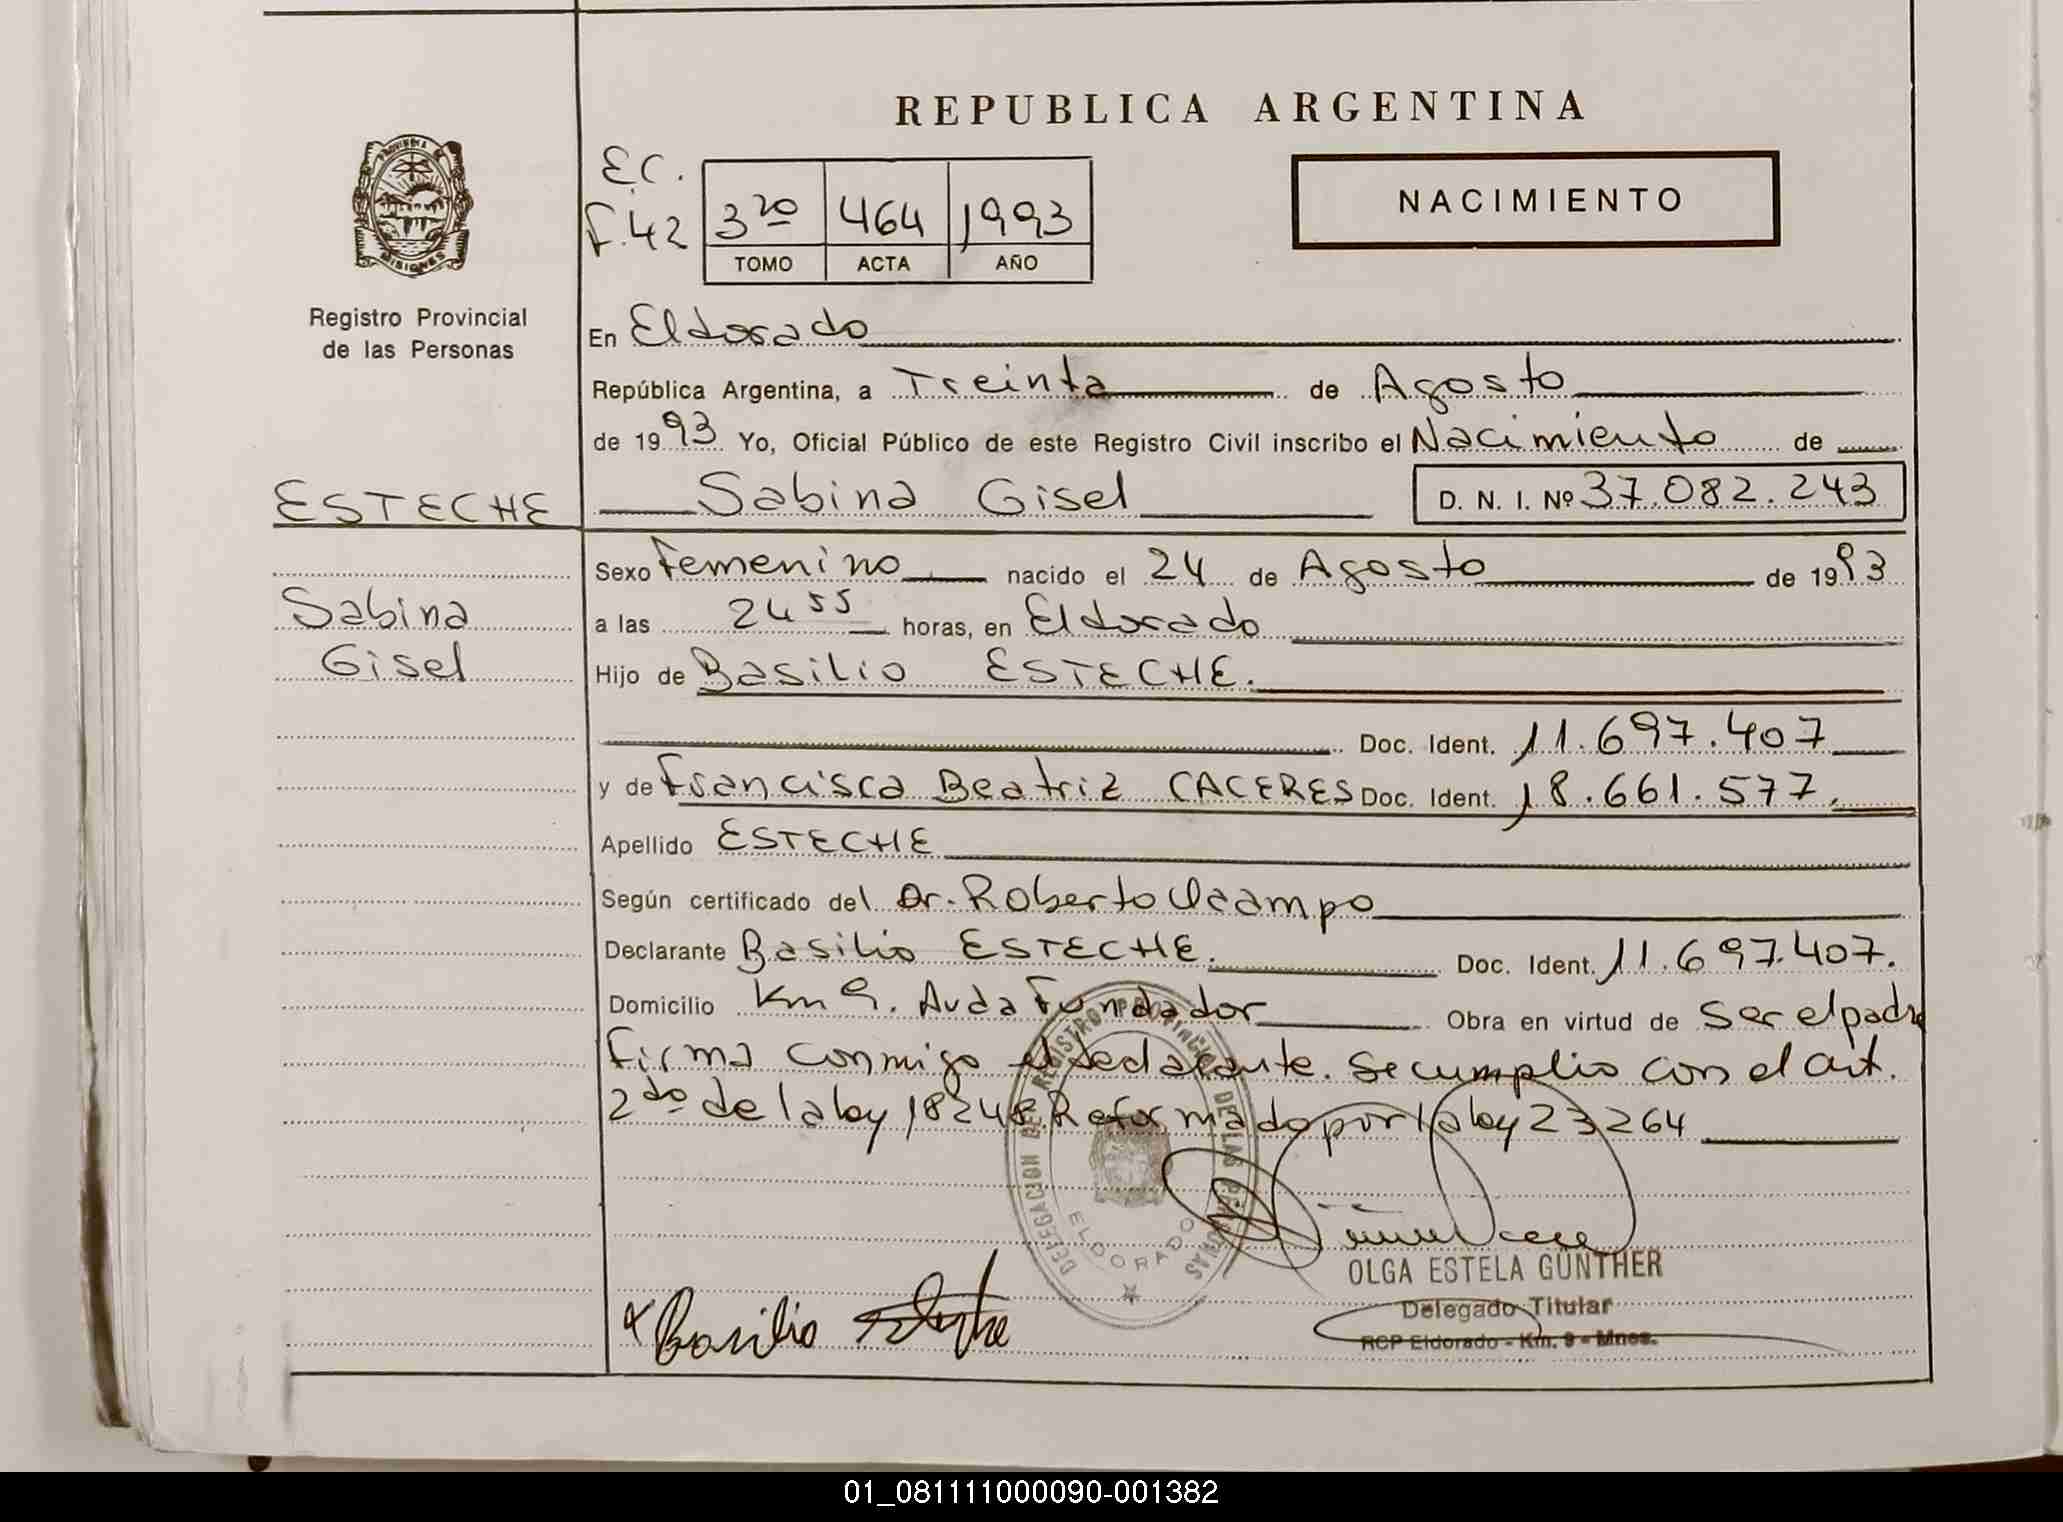 REPUBLICA ARGENTINA
PROVINCIA DE
MISIONES
Registro Provincial
de las Personas
E.C.
F.42
3ro 464 1993
TOMO ACTA AÑO
NACIMIENTO
En Eldorado
República Argentina, a Treinta de Agosto
de 1993 Yo, Oficial Público de este Registro Civil inscribo el Nacimiento de
ESTECHE
Sabina Gisel D. N. I. Nº 37.082.243
Sexo Femenino nacido el 24 de Agosto de 1993
Sabina
Gisel
a las 24 55 horas, en Eldorado
Hijo de Basilio ESTECHE.
Doc. Ident. 11.697.407
y de Francisca Beatriz CACERES Doc. Ident. 18.661.577.
Apellido ESTECHE
Según certificado del Dr. Roberto Ocampo
Declarante Basilio ESTECHE. Doc. Ident. 11.697.407.
Domicilio Km 9. Avda Fundador Obra en virtud de Ser el padre
Firma conmigo el declarante. Se cumplio con el art.
2do de la ley 18248 Reformado por la ley 23264
DELEGACION DEL REGISTRO PROVINCIAL DE LAS PERSONAS
ELDORADO
x Basilio Esteche
OLGA ESTELA GÜNTHER
Delegado Titular
RCP Eldorado - Km. 9 - Mnes.
01_081111000090-001382